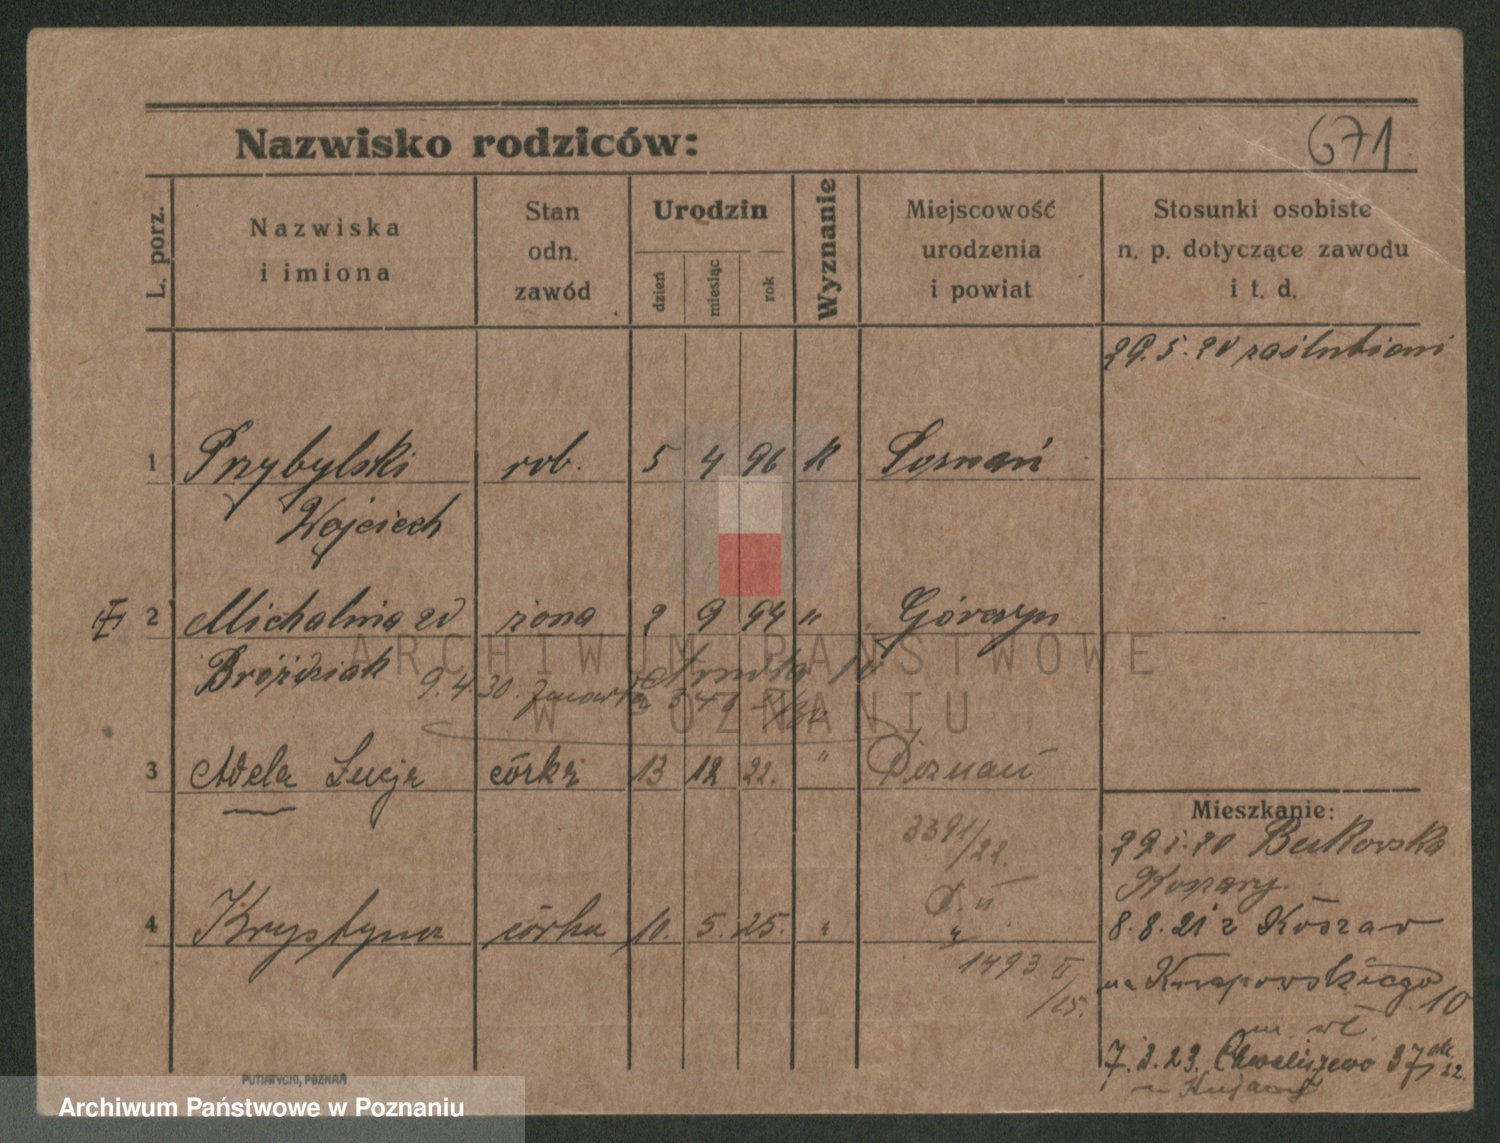 Nazwisko rodziców:
671
L. porz.
Nazwiska
i imiona
Stan
odn.
zawód
Urodzin
dzień
miesiąc
rok
Wyznanie
Miejscowość
urodzenia
i powiat
Stosunki osobiste
n. p. dotyczące zawodu
i t. d.
29.5.20 zaślubieni
1 Przybylski rob. 5 4 96 K Poznań
Wojciech
2 Michalina zd żona 2 9 94 " Górczyn
Bróździak
9.4.30.
3 Adela Lucja córka 13 12 22. " Poznań
3391/22.
Mieszkanie:
29.5.20 Bukowska
8.8.21 z
4 Krystyna córka 10. 5. 25. " "
1493 II
/25.
na 10
7.3.23. Chwaliszewo 37
ARCHIWUM PAŃSTWOWE
W POZNANIU
PUTIATYCKI, POZNAŃ
Archiwum Państwowe w Poznaniu